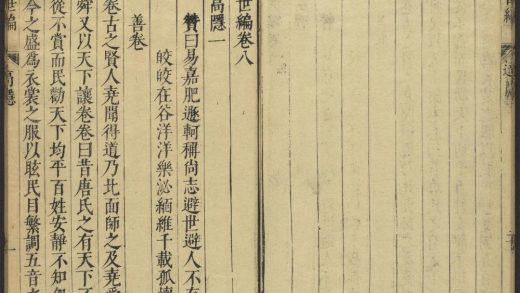 世編卷八
高隱一
贊曰易嘉肥遯軻稱尚志避世避人不
皎皎在谷洋洋樂泌緬維千載孤
善卷
卷古之賢人堯聞得道乃北面師之及堯
舜又以天下讓卷卷曰昔唐氏之有天下不
從不賞而民勸天下均平百姓安靜不知
今之盛為衣裳之服以眩民目繁調五音之
世編 高隱 一